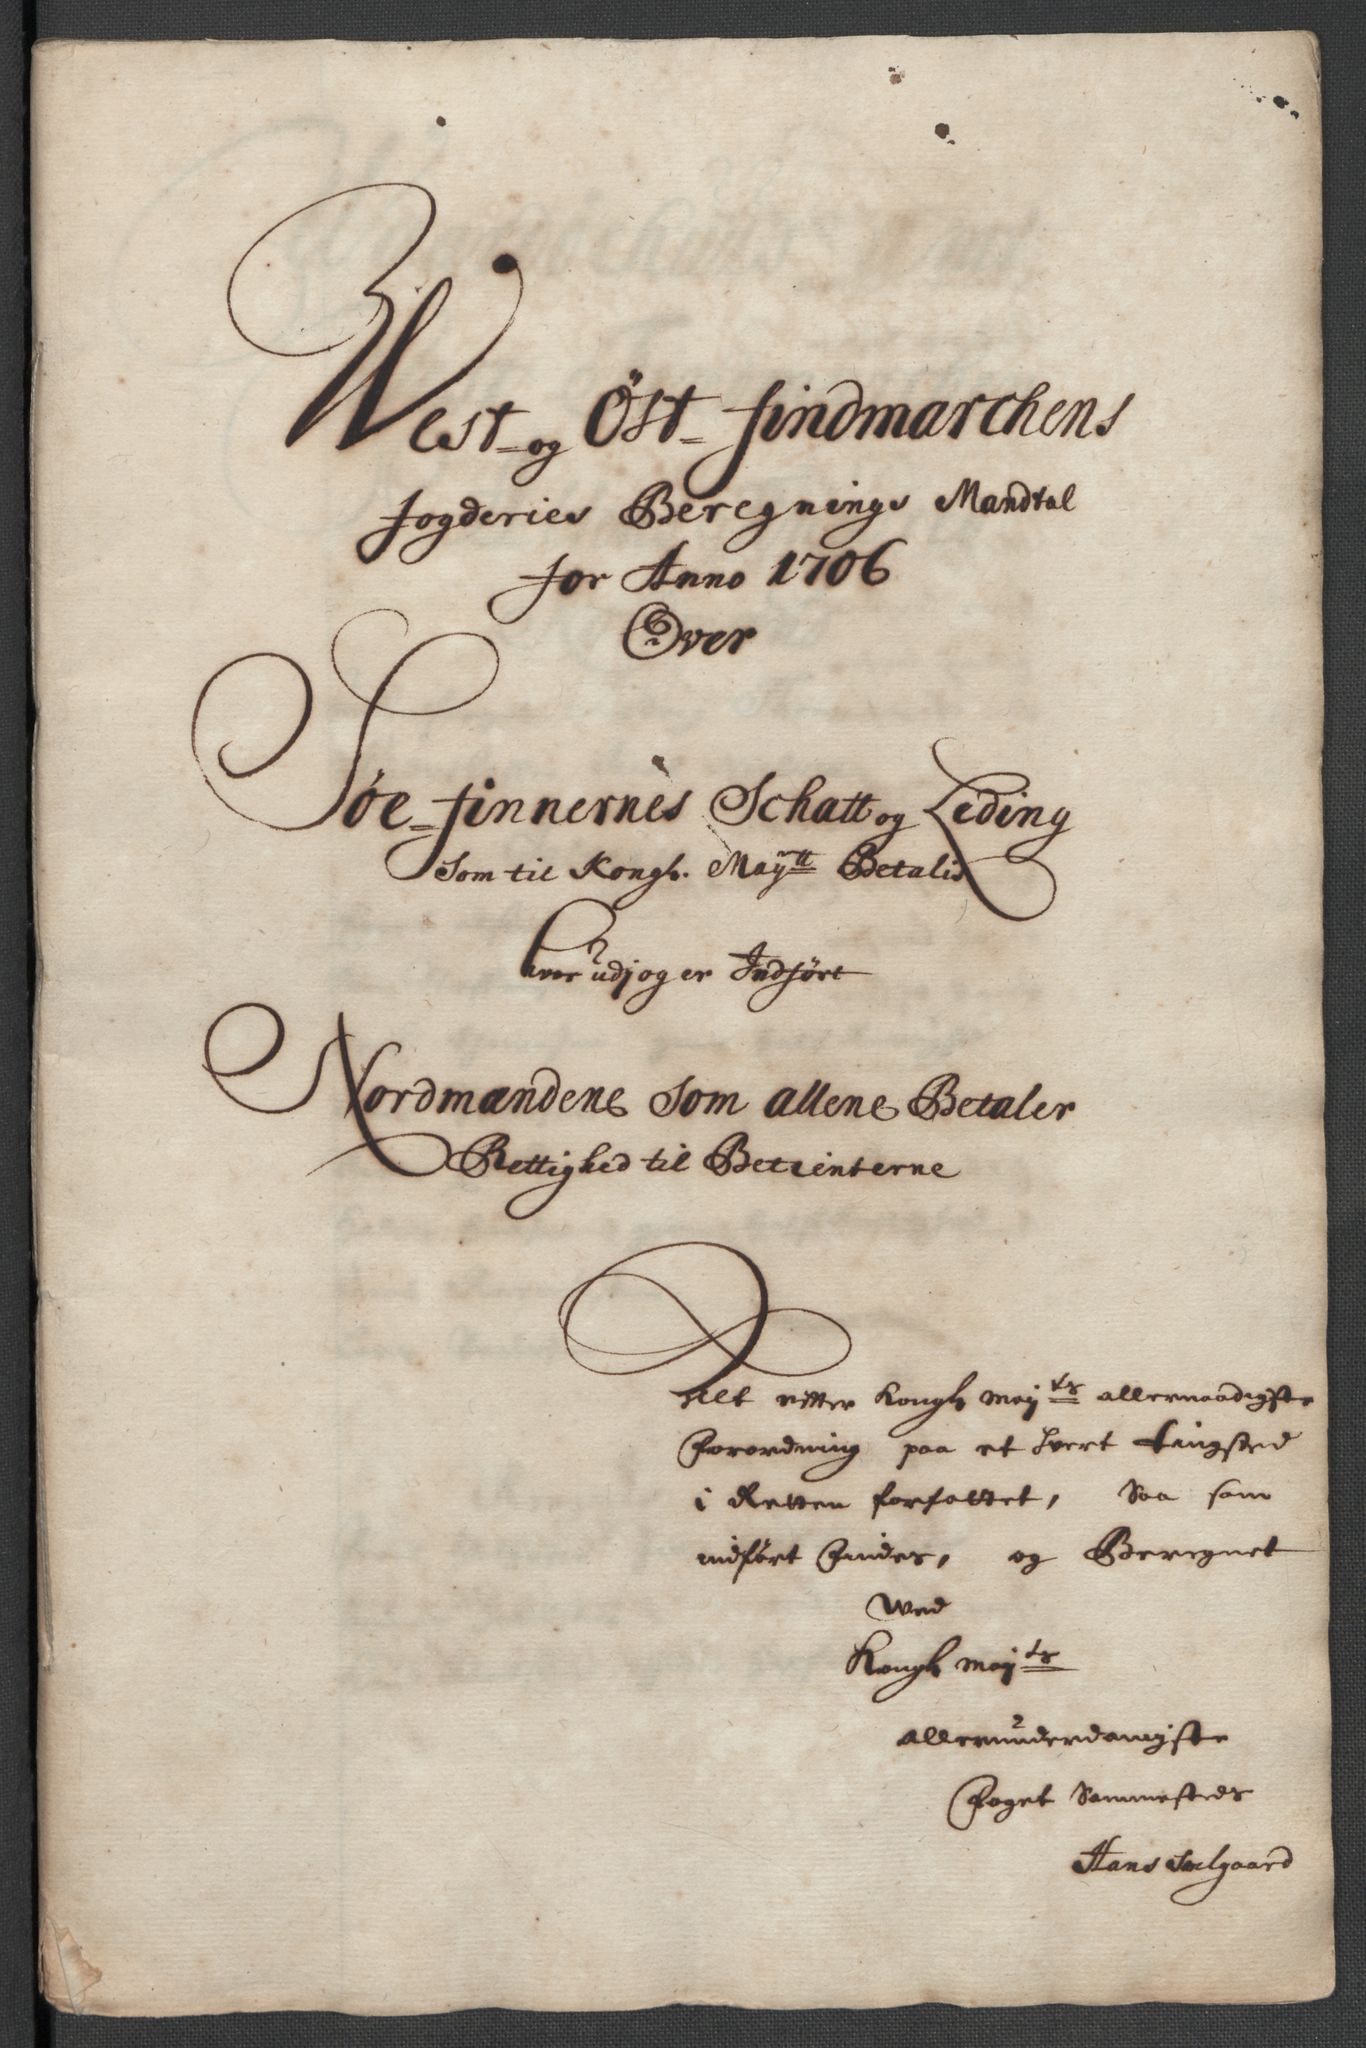 West- og Öst- findmarchens
fogderies Beregnings Mandtal
for Anno 1706
Over
Søe-finnernes Schatt og Leding
Som til Kongl. Mayᵗᵗ Betalis
hvor udj og er Indført
Nordmændene som allene Betaler
Rettighed til Betienterne
Alt efter Kongl Mayᵗˢ allernaadigste
Forordning paa et hvert Tingsted
i Retten forfattet, Saa som
indført findes, og Beregnet
Wed
Kongl Mayᵗˢ
allerunderdanigste
Foget Sammesteds
Hans Sælgaard